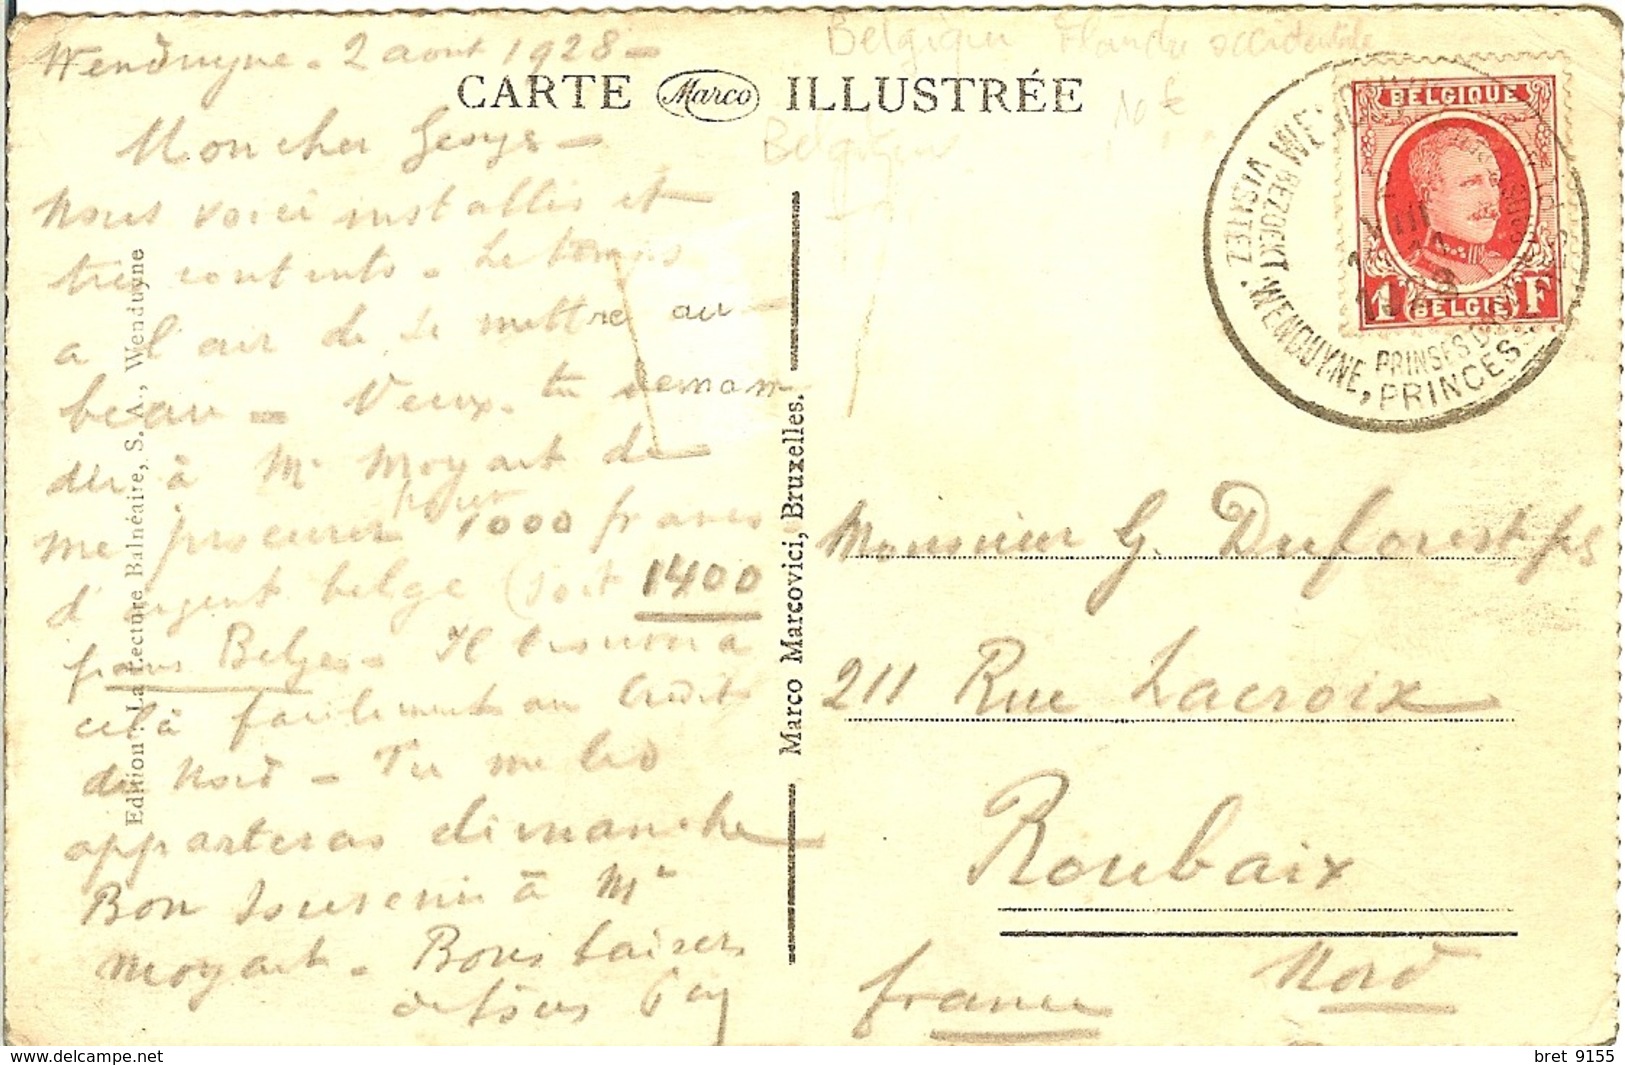 Wenduyne - 2 aout 1928 -
Belgique Flandre occidentale
CARTE Marco ILLUSTRÉE
10 €
Belgique
Mon cher Georges -
Nous voici installés et
très contents - Le temps
a l'air de se mettre au
beau - Veux-tu deman-
der à Mr Moyart de
me procurer pour 1000 francs
d'argent belge (soit 1400
francs Belges - Il trouvera
celà facilement au Crédit
du Nord - Tu me les
apporteras dimanche
Bon souvenir à Mr
Moyart - Bons baisers
Edition: La Lecture Balnéaire, S. A., Wenduyne
Marco Marcovici, Bruxelles.
BELGIQUE
1 F
(BELGIE)
VISITEZ WENDUYNE
BEZOEKT WENDUYNE, PRINSES
PRINCESSE
VIII
Monsieur G. Duforest fils
211 Rue Lacroix
Roubaix
Nord
france
bret 9155